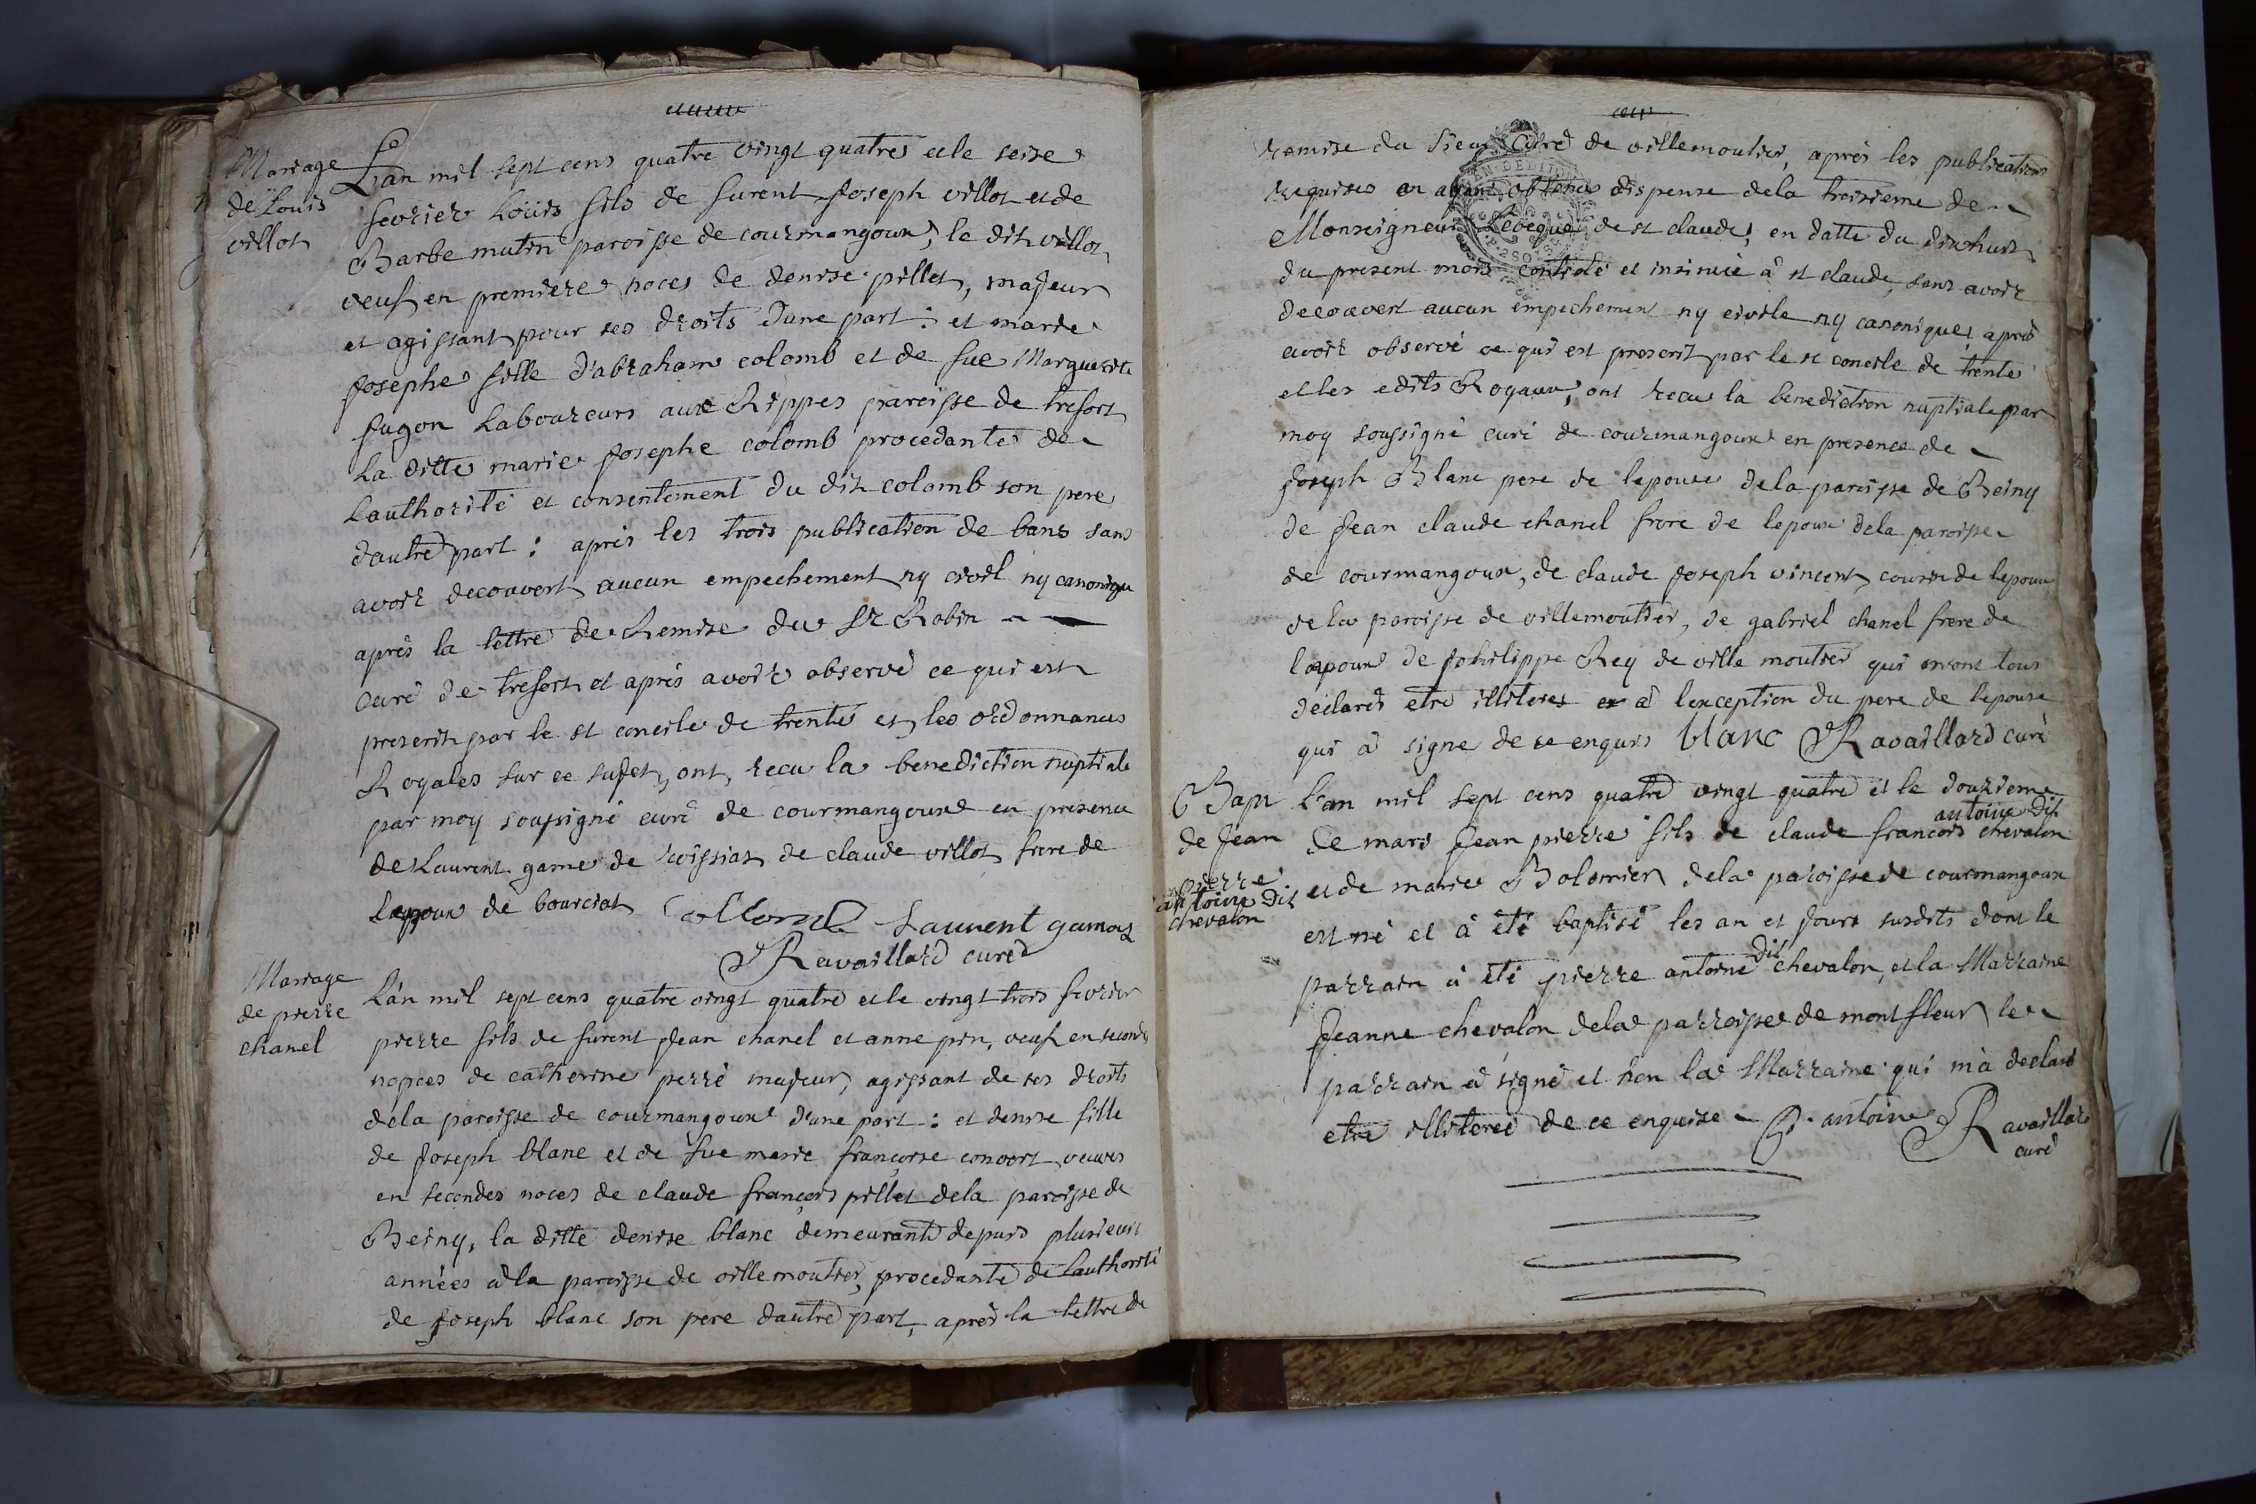 Mariage
de Louis
villot
L'an mil sept cens quatre vingt quatre et le seise
fevrier Loüis fils de furent Joseph villot et de
Barbe mutin paroisse de courmangoux, le dit villot
veuf en premiere noces de denise pillet, majeur
et agissant pour ses droits d'une part : et marie
Josephe fille d'abraham colomb et de fue Marguerite
fugon Laboureurs aux Rippes paroisse de trefort
La ditte marie Josephe colomb procedante de
Lauthorité et consentement du dit colomb son pere
dautre part : après les trois publication de bans sans
avoir decouvert aucun empechement ny civil ny canonique
après la lettre de Remise du Sr Robin
curé de trefort et après avoir observé ce qui est
prescrit par le st concile de trente et les ordonnances
Royales sur ce sujet, ont, recu la benediction nuptiale
par moy soussigné curé de courmangoux en presence
de Laurent game de de claude villot frere de
Lepoux de bourciat Collomb Laurent gamoz
Ravaillard curé
Mariage
de pierre
chanel
L'an mil sept cens quatre vingt quatre et le vingt trois fevrier
pierre fils de furent Jean chanel et anne pin, veuf en seconde
nopces de catherine perré majeur, agissant de ses droits
dela paroisse de courmangoux d'une part : et denise fille
de Joseph blanc et de fue marie francoise convert veuve
en secondes noces de claude françois pillet dela paroisse de
Beiny, la ditte denise blanc demeurante depuis plusieurs
années à la paroisse de villemoutier, procedante de Lauthorité
de Joseph blanc son pere dautre part, après la lettre de
remise du sieur Curé de villemoutier, après les publications
requises en ayant obtenu dispense dela troisieme de
Monseigneur Leveque de st claude, en datte du dixhuit
du present mois controlé et insinué à st claude, sans avoir
decouvert aucun empechement ny civile ny canonique, après
avoir observé ce qui est prescrit par le st concile de trente
et les edits Royaux, ont recu la benediction nuptiale par
moy soussigné curé de courmangoux en presence de
Joseph Blanc pere de lepouse dela paroisse de Beiny
de Jean claude chanel frere de lepoux dela paroisse
de courmangoux, de claude Joseph vincent, cousin de lepoux
dela paroisse de villemoutier, de gabriel chanel frere de
lepoux de philippe Rey de ville moutier qui mont tous
declarés etre illiteres à lexception du pere de lepouse
qui à signe de ce enquis blanc Ravaillard curé
Bapt
de Jean
pierre
antoine dit
chevalon
L'an mil sept cens quatre vingt quatre et le douzieme
antoine dit
de mars Jean pierre fils de claude francois chevalon
et de marie Bolomier dela paroisse de courmangoux
est né et à été baptisé les an et jours susdits dont le
parrain à été pierre antoine dit chevalon, et la Marraine
Jeanne chevalon dela parroisse de montfleur le
parrain à signé et non la Marraine qui m'à declaré
etre illiterée de ce enquise P. antoine Ravaillard
curé